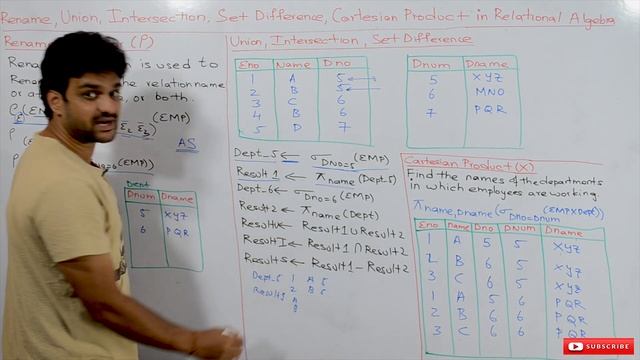 Rename, Union, Intersection, Set Difference, Cartesian Product in Relational Algebra
Rena (ρ)
Rena on is used to
Rena the relation name
or a , or both.
(EMP)
AS
=6 (EMP)
Dept
Dnum Dname
5 XYZ
6 PQR
Union, Intersection, Set Difference
Eno Name Dno
1 A 5
2 B 5
3 C 6
4 B 6
5 D 7
Dnum Dname
5 XYZ
6 MNO
7 PQR
Dept_5 ← σ Dno=5 (EMP)
Result1 ← π name (Dept_5)
Dept-6 ← σ Dno=6 (EMP)
Result2 ← π name (Dept)
Resultu ← Result1 ∪ Result2
ResultI ← Result1 ∩ Result2
Results ← Result1 - Result2
Dept_5 1 A 5
2 B 5
Result1 A
B
Cartesian Product (X)
Find the names of the departments
in which employees are working
π name, dname (σ Dno=Dnum (EMP X Dept))
Eno Name Dno Dnum Dname
1 A 5 5 XYZ
2 B 6 5 XYZ
3 C 6 5 XYZ
1 A 5 6 PQR
2 B 6 6 PQR
3 C 6 6 PQR
SUBSCRIBE